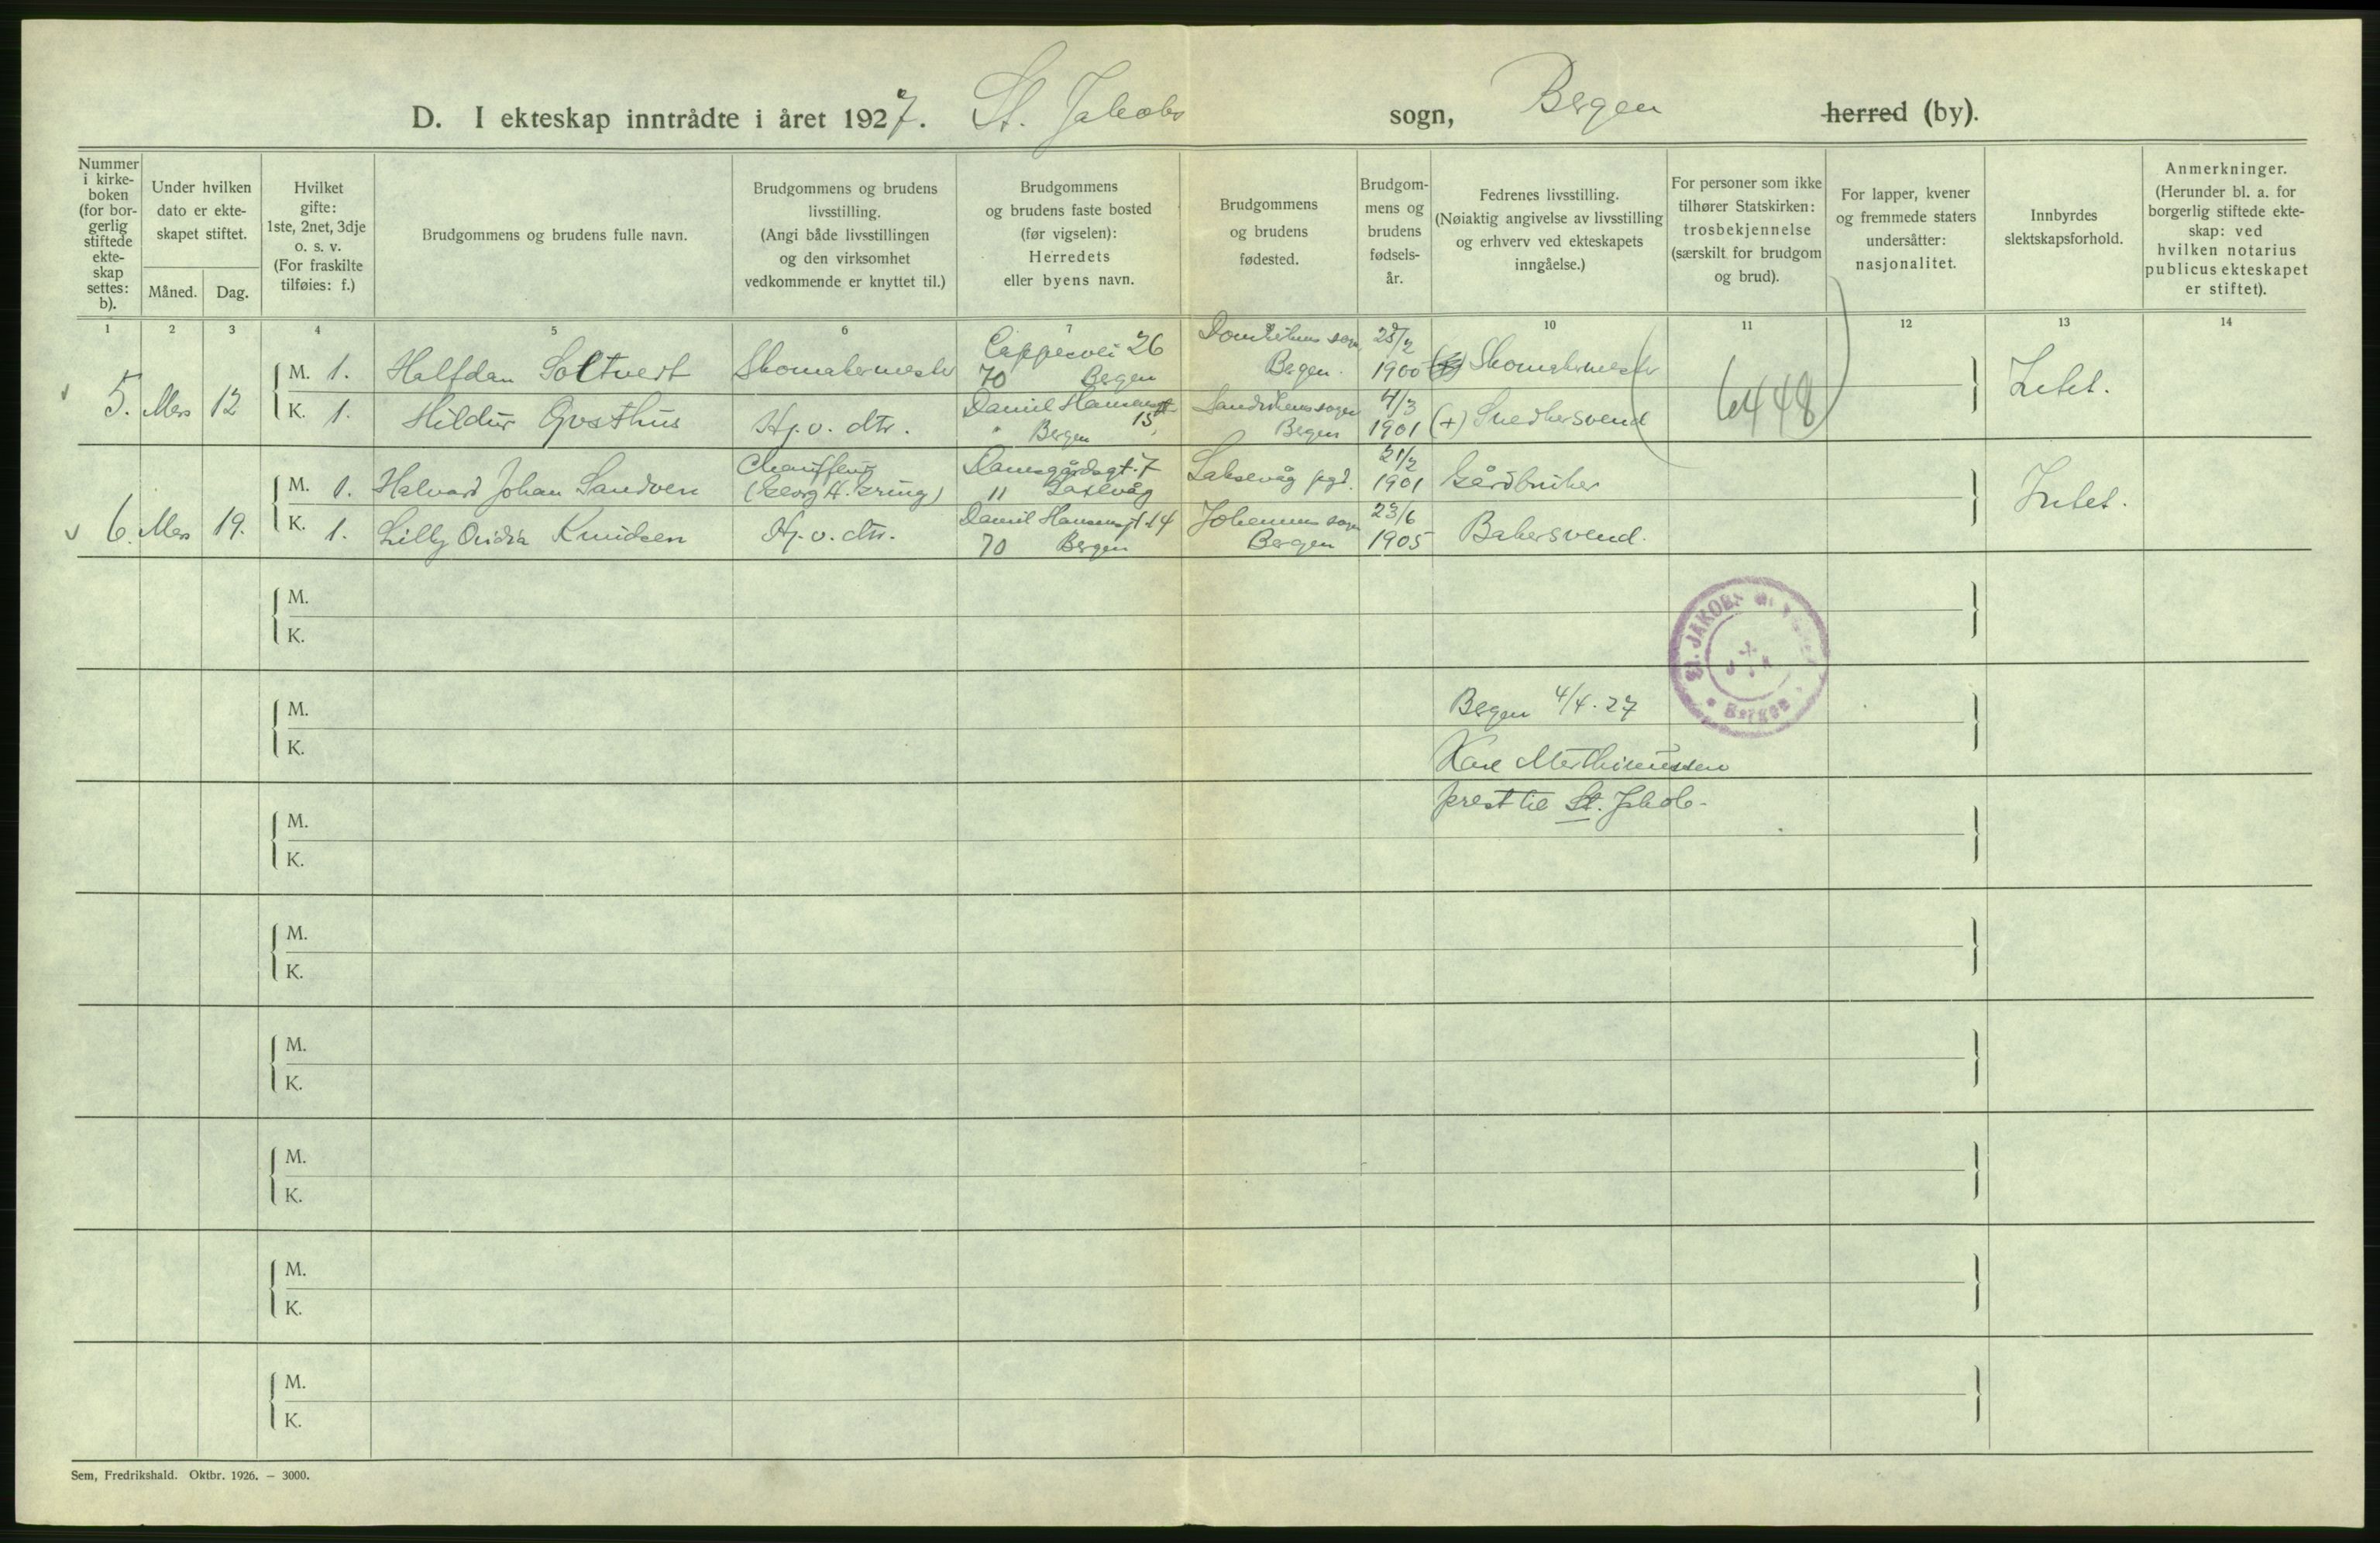 D. I ekteskap inntrådte i året 1927. St. Jakobs sogn, Bergen herred (by).
Nummer i kirke-boken (for bor-gerlig stiftede ekte-skap settes: b).
Under hvilken dato er ekte-skapet stiftet.
Måned. Dag.
Hvilket gifte: 1ste, 2net, 3dje o. s. v. (For fraskilte tilføies: f.)
Brudgommens og brudens fulle navn.
Brudgommens og brudens livsstilling. (Angi både livsstillingen og den virksomhet vedkommende er knyttet til.)
Brudgommens og brudens faste bosted (før vigselen): Herredets eller byens navn.
Brudgommens og brudens fødested.
Brudgom-mens og brudens fødsels-år.
Fedrenes livsstilling. (Nøiaktig angivelse av livsstilling og erhverv ved ekteskapets inngåelse.)
For personer som ikke tilhører Statskirken: trosbekjennelse (særskilt for brudgom og brud).
For lapper, kvener og fremmede staters undersåtter: nasjonalitet.
Innbyrdes slektskapsforhold.
Anmerkninger. (Herunder bl. a. for borgerlig stiftede ekte-skap: ved hvilken notarius publicus ekteskapet er stiftet).
1 2 3 4 5 6 7 10 11 12 13 14
5. Mars 12
M. 1. Halfdan Soltvert Skomakermester Cappesvei 26 70 Bergen Domkirkens sogn Bergen. 1900 Skomakermester
K. 1. Hildur Gvsthus Hj. v. dtr. Daniel Hansensgt 15, " Bergen Sandvikens sogn Bergen 4/3 1901 (+) Snedkersvend
6448
Intet.
6. Mars 19.
M. 1. Halvard Johan Sandven Chauffeur (Georg H. Gring) Damsgårdsgt. 7 " Laksevåg Laksevåg pgd. 21/2 1901 Gårdbruker
K. 1. Lilly Ovidia Knudsen Hj. v. dtr. Daniel Hansensgt 14 70 Bergen Johannes sogn Bergen 23/6 1905 Bakersvend.
Intet.
M.
K.
St. JAKOBS
Bergen
M.
K.
Bergen 4/4. 27
Karl Marthinussen
prest til St. Jakob.
M.
K.
M.
K.
M.
K.
M.
K.
M.
K.
M.
K.
Sem, Fredrikshald. Oktbr. 1926. — 3000.